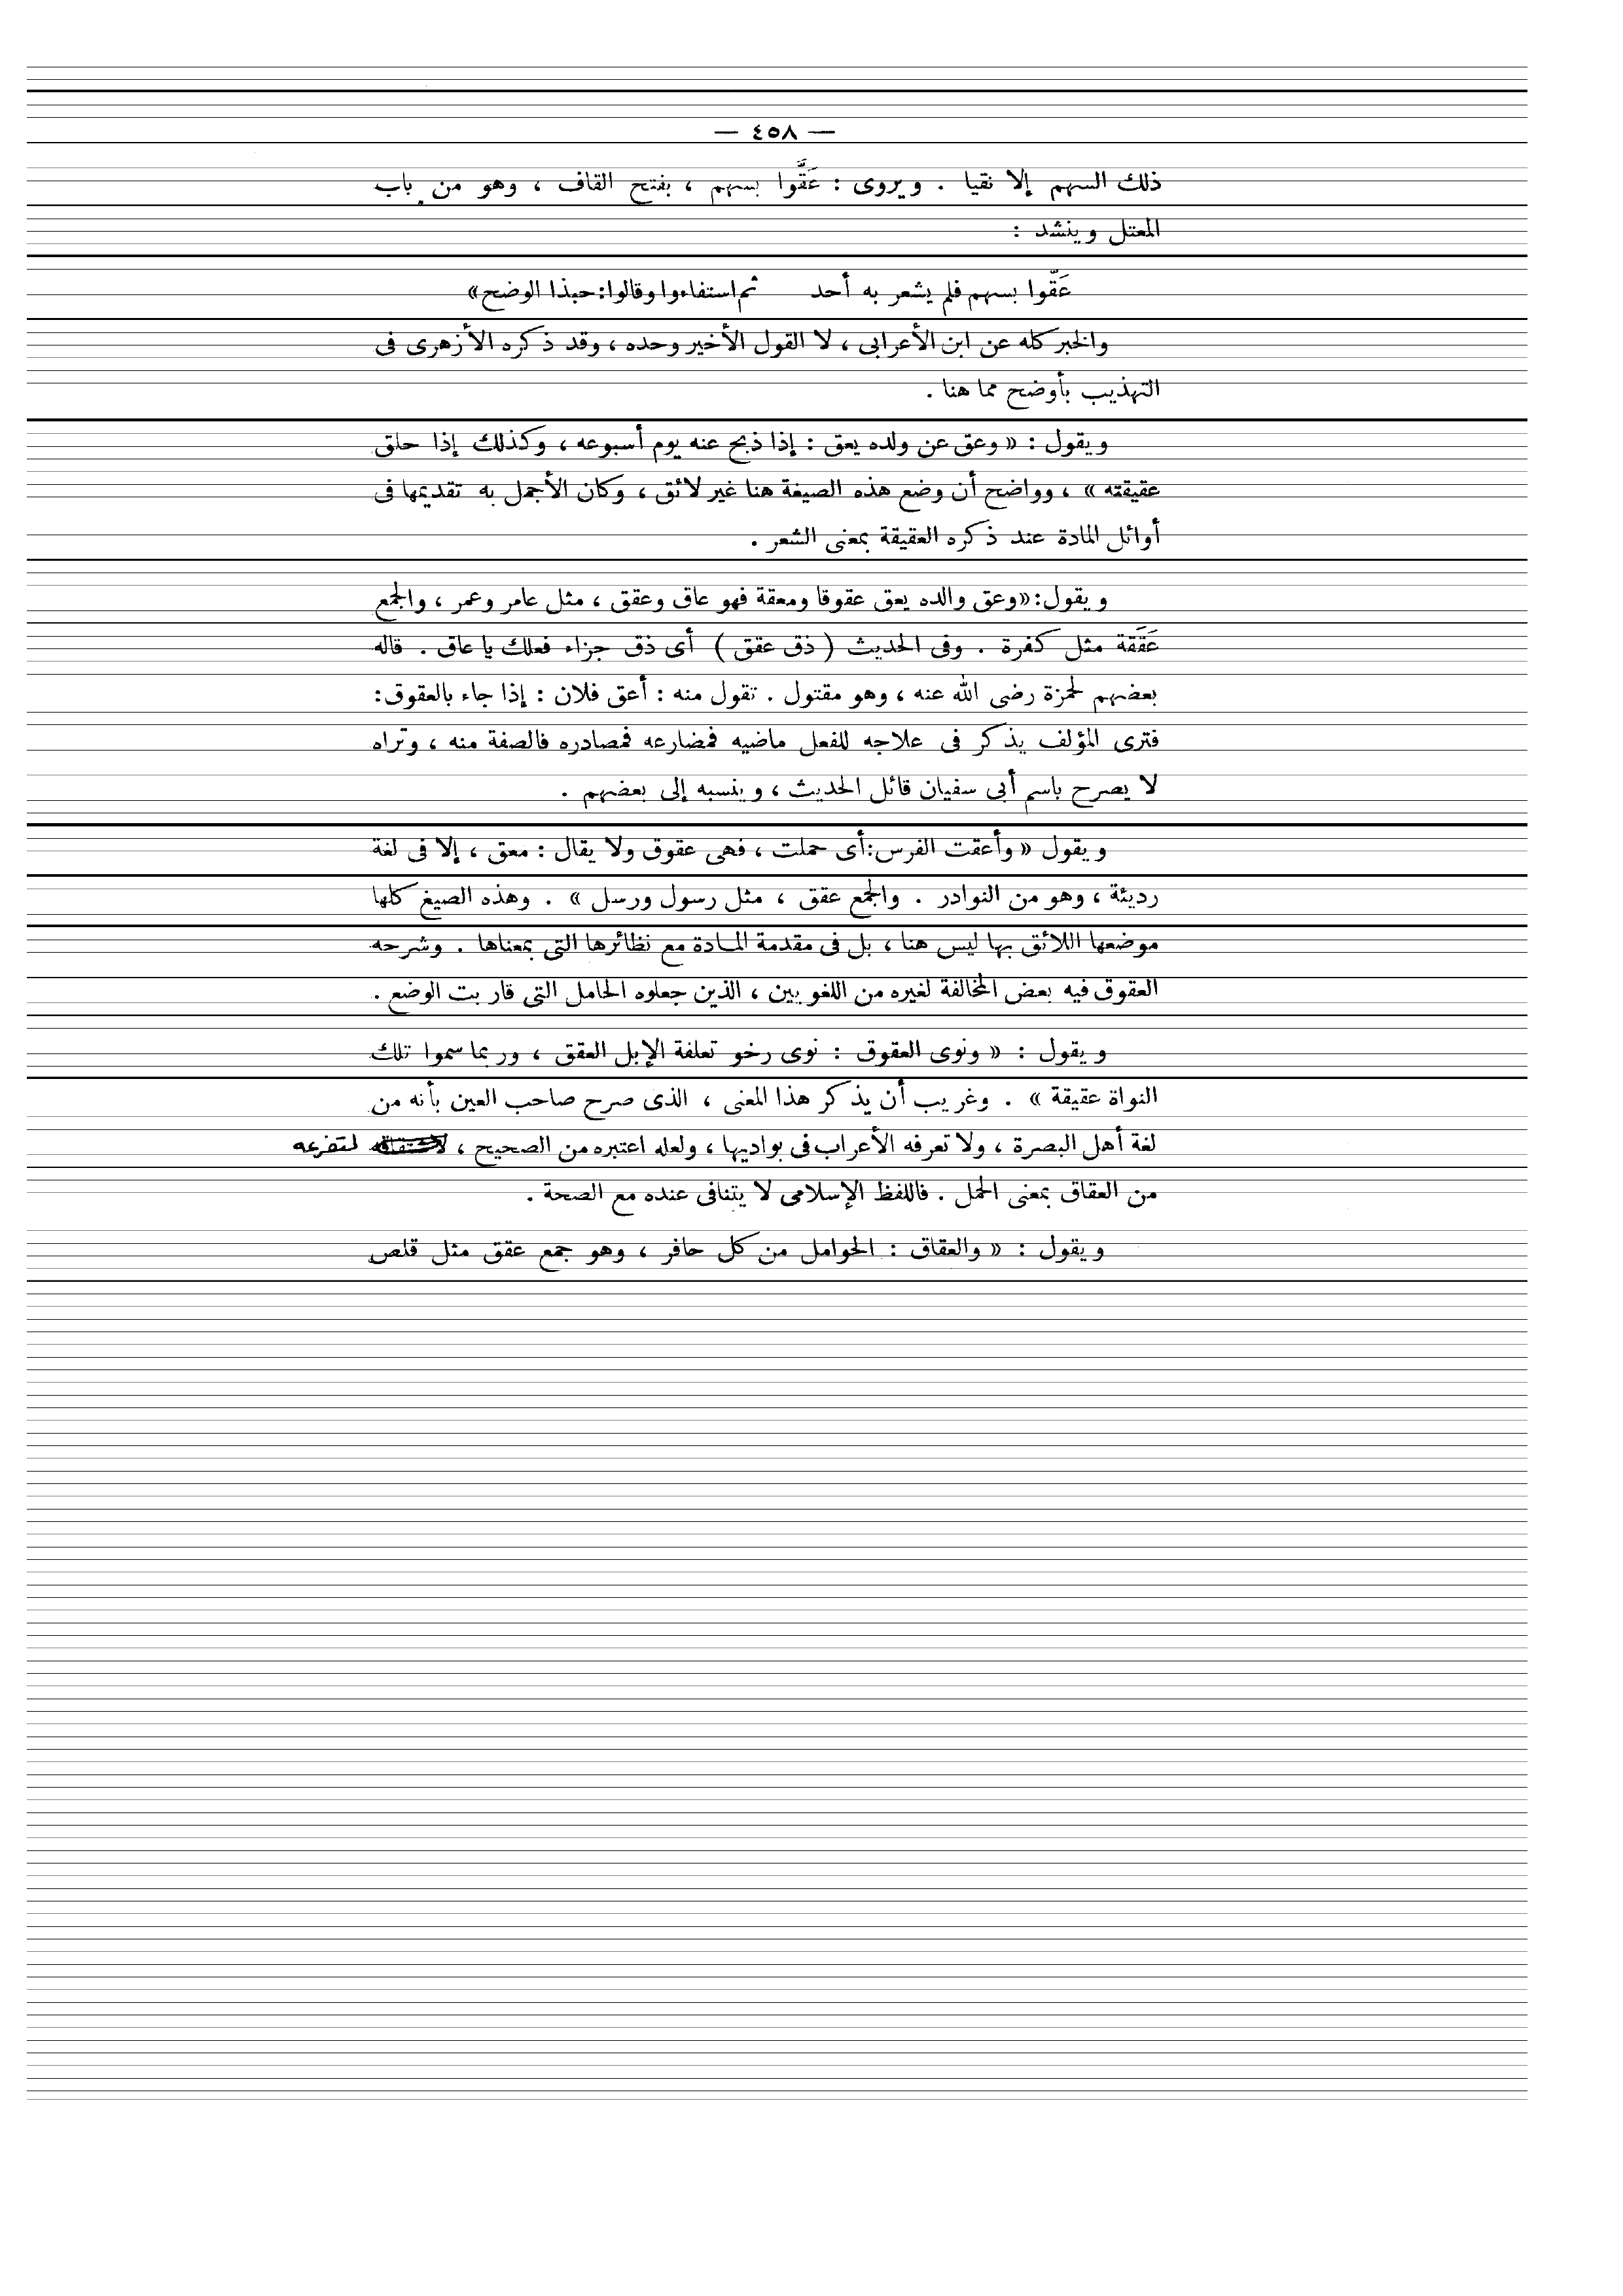 — ٤٥٨ —
ذلك السهم إلا نقيا . ويروى : عَقَّوا بسهم ، بفتح القاف ، وهو من باب
المعتل وينشد :
عَقَّوا بسهم فلم يشعر به أحد ثم استفاءوا وقالوا : حبذا الوضح»
والخبر كله عن ابن الأعرابى ، لا القول الأخير وحده ، وقد ذكره الأزهرى فى
التهذيب بأوضح مما هنا .
ويقول : « وعق عن ولده يعق : إذا ذبح عنه يوم أسبوعه ، وكذلك إذا حلق
عقيقته » ، وواضح أن وضع هذه الصيغة هنا غير لائق ، وكان الأجمل به تقديمها فى
أوائل المادة عند ذكره العقيقة بمعنى الشعر .
ويقول : «وعق والده يعق عقوقا ومعقة فهو عاق وعقق ، مثل عامر وعمر ، والجمع
عَقَقة مثل كفرة . وفى الحديث ( ذق عقق ) أى ذق جزاء فعلك يا عاق . قاله
بعضهم لحمزة رضى الله عنه ، وهو مقتول . تقول منه : أعق فلان : إذا جاء بالعقوق:
فترى المؤلف يذكر فى علاجه للفعل ماضيه فمضارعه فمصادره فالصفة منه ، وتراه
لا يصرح باسم أبى سفيان قائل الحديث ، وينسبه إلى بعضهم .
ويقول « وأعقت الفرس : أى حملت ، فهى عقوق ولا يقال : معق ، إلا فى لغة
رديئة ، وهو من النوادر . والجمع عقق ، مثل رسول ورسل » . وهذه الصيغ كلها
موضعها اللائق بها ليس هنا ، بل فى مقدمة المادة مع نظائرها التى بمعناها . وشرحه
العقوق فيه بعض المخالفة لغيره من اللغويين ، الذين جعلوه الحامل التى قاربت الوضع .
ويقول : « ونوى العقوق : نوى رخو تعلفة الإبل العقق ، وربما سموا تلك
النواة عقيقة » . وغريب أن يذكر هذا المعنى ، الذى صرح صاحب العين بأنه من
لغة أهل البصرة ، ولا تعرفه الأعراب فى بواديها ، ولعله اعتبره من الصحيح ، لتفرعه
من العقاق بمعنى الحمل . فاللفظ الإسلامى لا يتنافى عنده مع الصحة .
ويقول : « والعقاق : الحوامل من كل حافر ، وهو جمع عقق مثل قلص